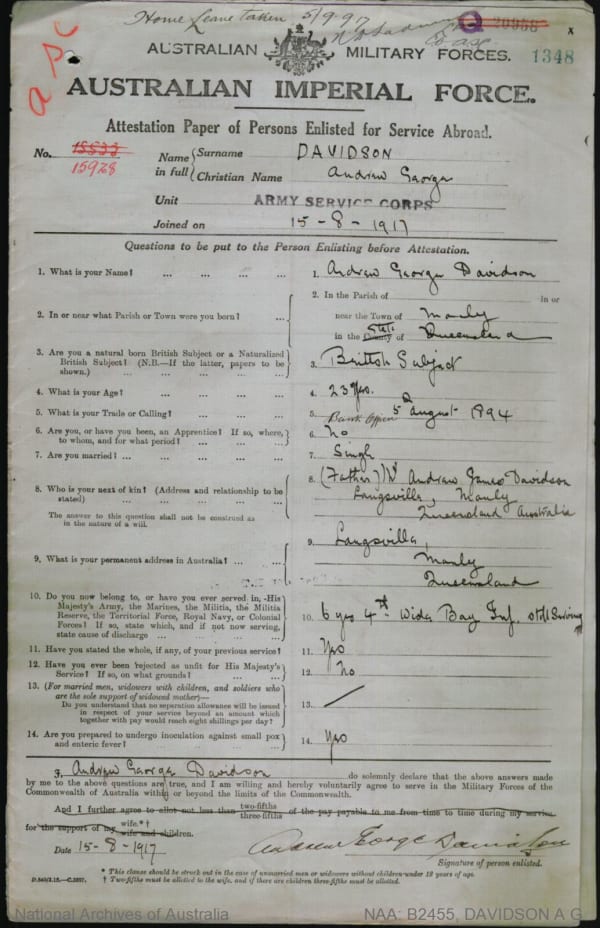 Home Leave taken 5/9.97
Q 20988
x
a s c
AUSTRALIAN MILITARY FORCES.
1348
AUSTRALIAN IMPERIAL FORCE.
Attestation Paper of Persons Enlisted for Service Abroad.
No. 15533
15928
Name in full { Surname DAVIDSON
Christian Name Andrew George
Unit ARMY SERVICE CORPS
Joined on 15-8-1917
Questions to be put to the Person Enlisting before Attestation.
1. What is your Name? ... ... ... 1. Andrew George Davidson
2. In or near what Parish or Town were you born? ... 2. In the Parish of in or
near the Town of Manly
in the County State of Queensland
3. Are you a natural born British Subject or a Naturalized
British Subject? (N.B.—If the latter, papers to be
shown.) ... ... ... ... 3. British Subject
4. What is your Age? ... ... ... 4. 23 yrs.
5. What is your Trade or Calling? ... ... 5. 5 August 1894
6. Are you, or have you been, an Apprentice? If so, where,
to whom, and for what period? ... ... ... 6. No
7. Are you married? ... ... ... ... 7. Single
8. Who is your next of kin? (Address and relationship to be
stated) ... ... ... ... 8. (Father) Andrew James Davidson
Langsville, Manly
Queensland Australia
The answer to this question shall not be construed as
in the nature of a will.
9. What is your permanent address in Australia? ... ... 9. Langsville,
Manly
Queensland
10. Do you now belong to, or have you ever served in, His
Majesty's Army, the Marines, the Militia, the Militia
Reserve, the Territorial Force, Royal Navy, or Colonial
Forces? If so, state which, and if not now serving,
state cause of discharge ... ... ... 10. 6 yrs 4th Wide Bay Inf. still Serving
11. Have you stated the whole, if any, of your previous service? 11. Yes
12. Have you ever been rejected as unfit for His Majesty's
Service? If so, on what grounds? ... ... 12. No
13. (For married men, widowers with children, and soldiers who
are the sole support of widowed mother)—
Do you understand that no separation allowance will be issued
in respect of your service beyond an amount which
together with pay would reach eight shillings per day? 13. /
14. Are you prepared to undergo inoculation against small pox
and enteric fever? ... ... ... ... 14. Yes
I, Andrew George Davidson do solemnly declare that the above answers made
by me to the above questions are true, and I am willing and hereby voluntarily agree to serve in the Military Forces of the
Commonwealth of Australia within or beyond the limits of the Commonwealth.
And I further agree to allot not less than two-fifths three-fifths of the pay payable to me from time to time during my service
for the support of my wife.*† wife and children.
Date 15-8-1917 Andrew George Davidson
Signature of person enlisted.
* This clause should be struck out in the case of unmarried men or widowers without children under 18 years of age.
† Two-fifths must be allotted to the wife, and if there are children three-fifths must be allotted.
National Archives of Australia
NAA: B2455, DAVIDSON A G